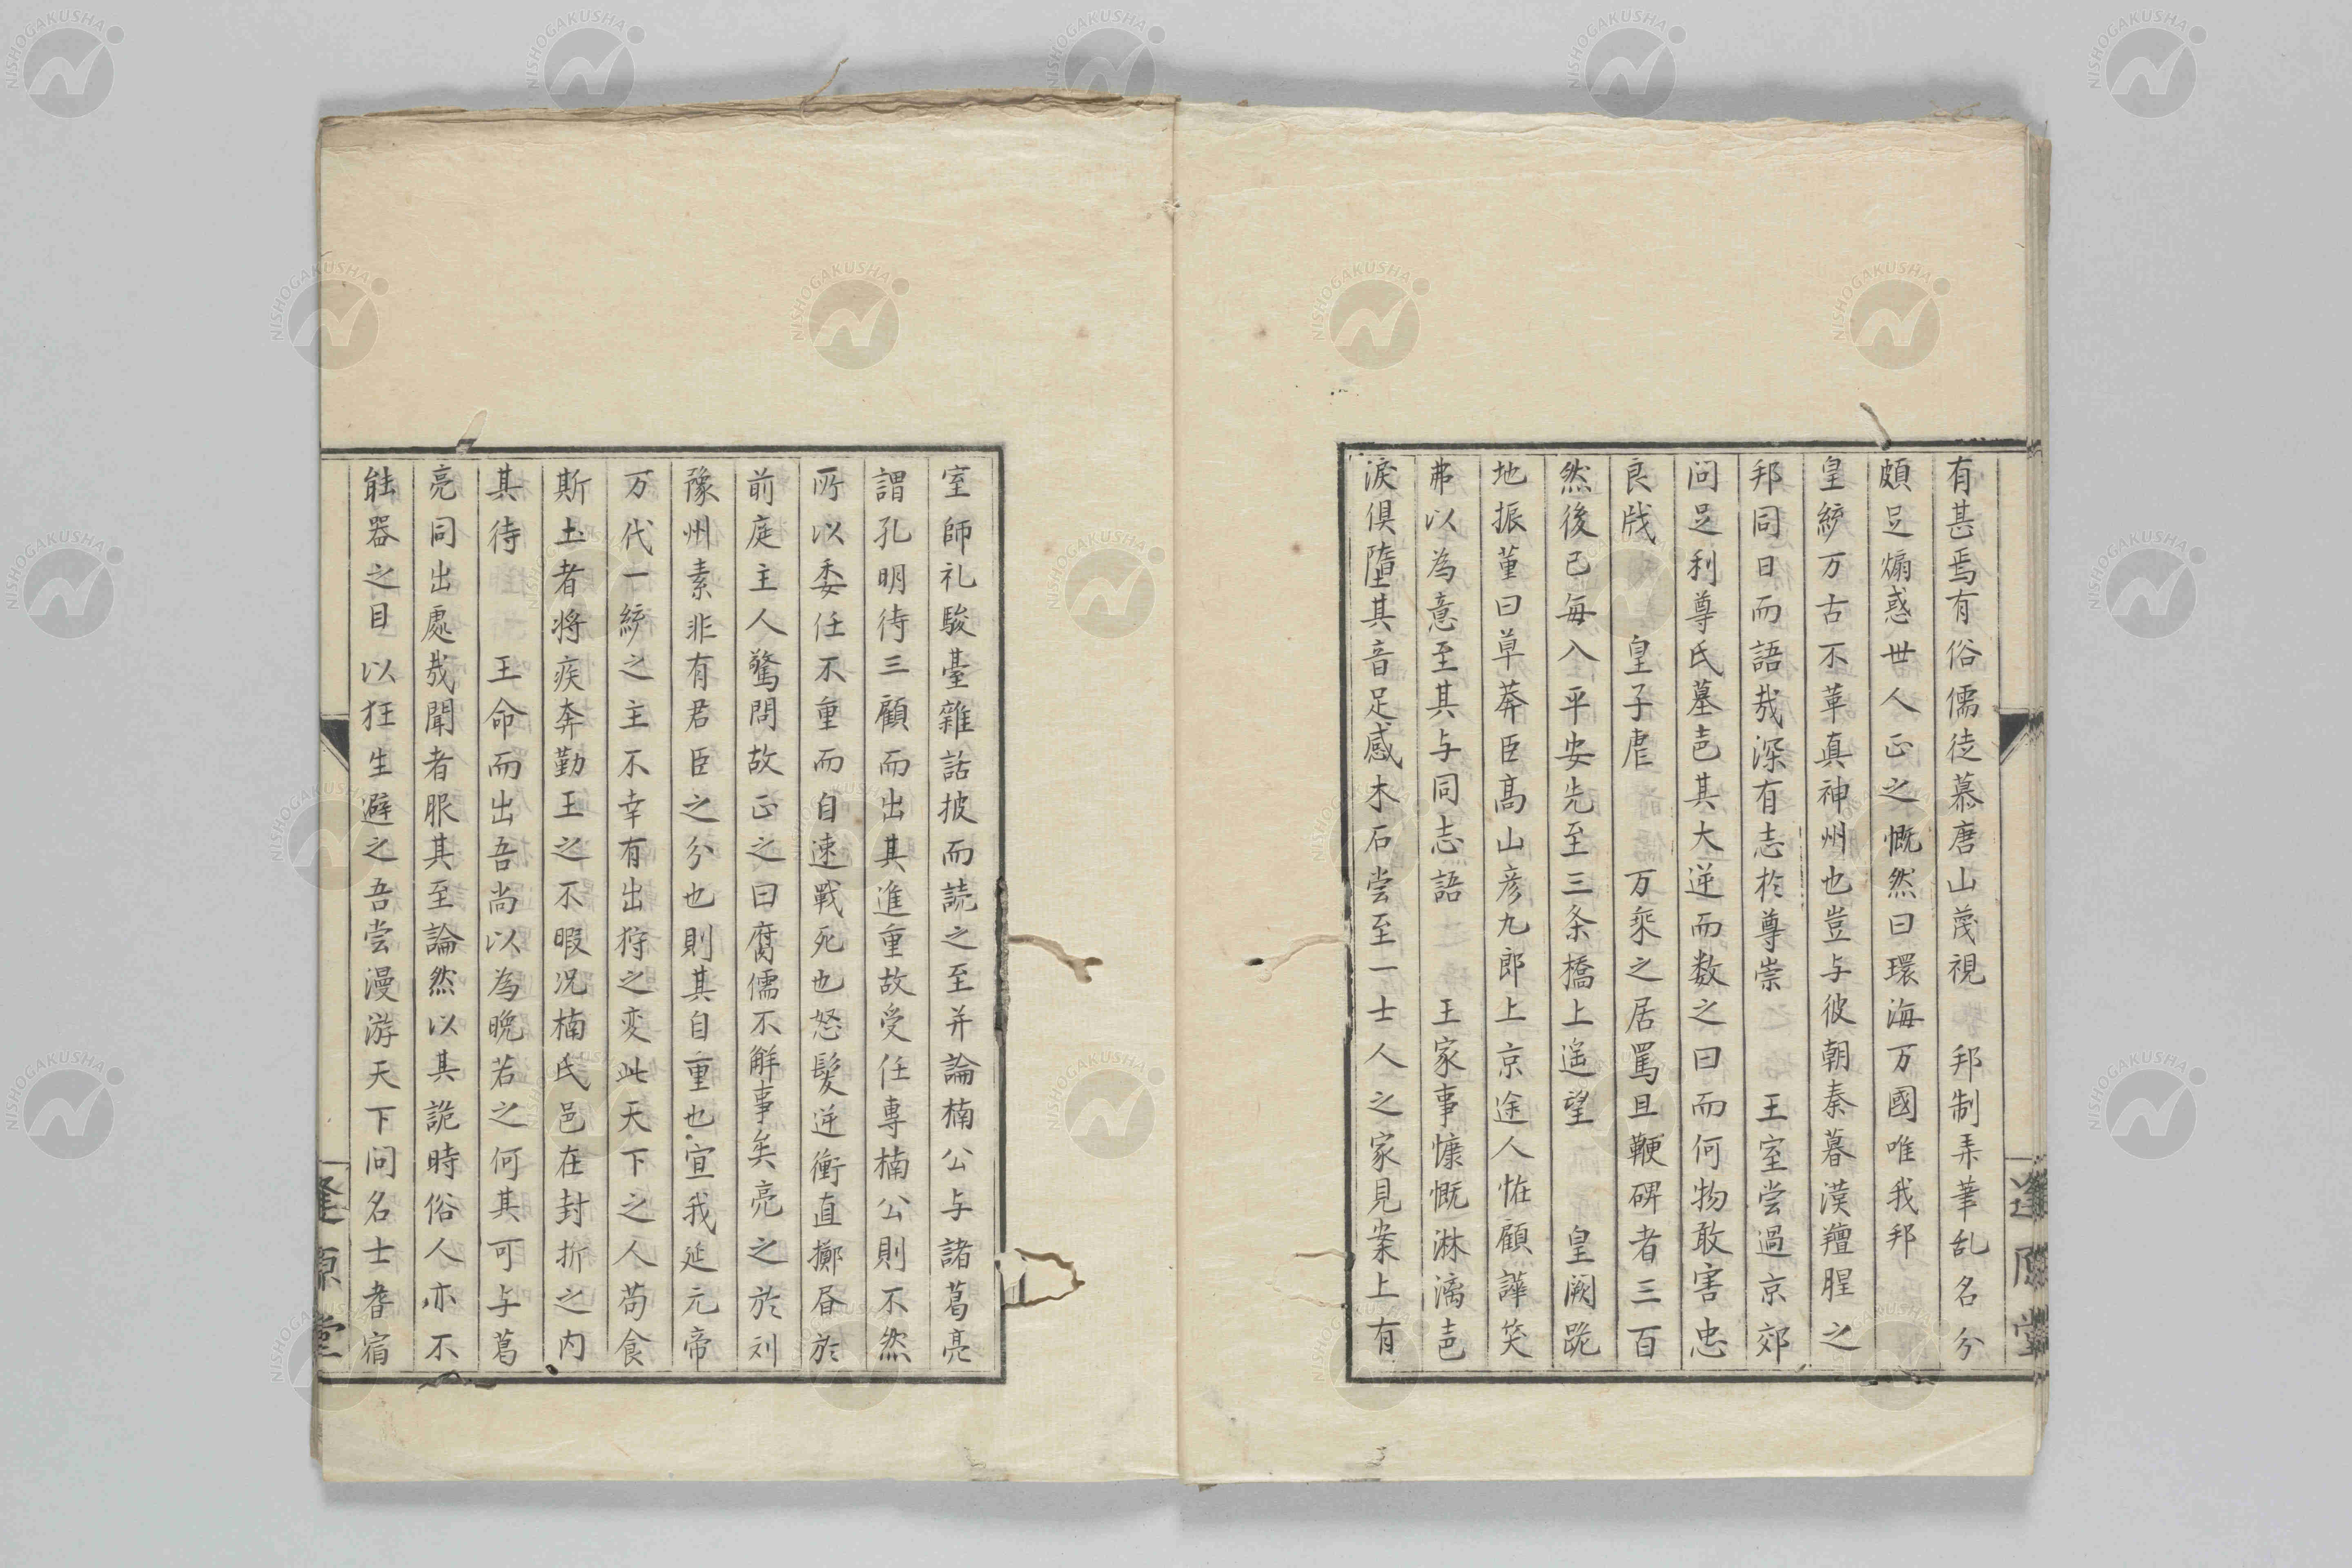 有甚焉有俗儒徒慕唐山蔑視 邦制弄筆乱名分
頗足煽惑世人正之慨然曰環海万國唯我邦
皇統万古不革真神州也豈与彼朝秦暮漢羶腥之
邦同日而語哉深有志於尊崇 王室嘗過京郊
问足利尊氏墓声其大逆而数之曰而何物敢害忠
良戕 皇子虐 万乘之居罵且鞭碑者三百
然後已每入平安先至三条橋上遥望 皇闕跪
地振董曰草莽臣髙山彦九郎上京途人恠顧譁笑
弗以為意至其与同志語 王家事慷慨淋漓声
淚俱墮其音足感木石尝至一士人之家見案上有
室師礼駿臺雜話披而読之至并論楠公与諸葛亮
謂孔明待三顧而出其進重故受任專楠公則不然
所以委任不重而自速戰死也怒髮逆衝直擲昏於
前庭主人驚問故正之曰腐儒不解事矣亮之於刘
豫州素非有君臣之分也則其自重也宜我延元帝
万代一統之主不幸有出狩之変此天下之人苟食
斯土者将疾奔勤王之不暇况楠氏邑在封折之内
其待 王命而出吾尚以為晚若之何其可与葛
亮同出處哉聞者服其至論然以其詭時俗人亦不
能器之目以狂生避之吾尝漫游天下问名士耆宿
逢原堂
逢原堂
NISHOGAKUSHA